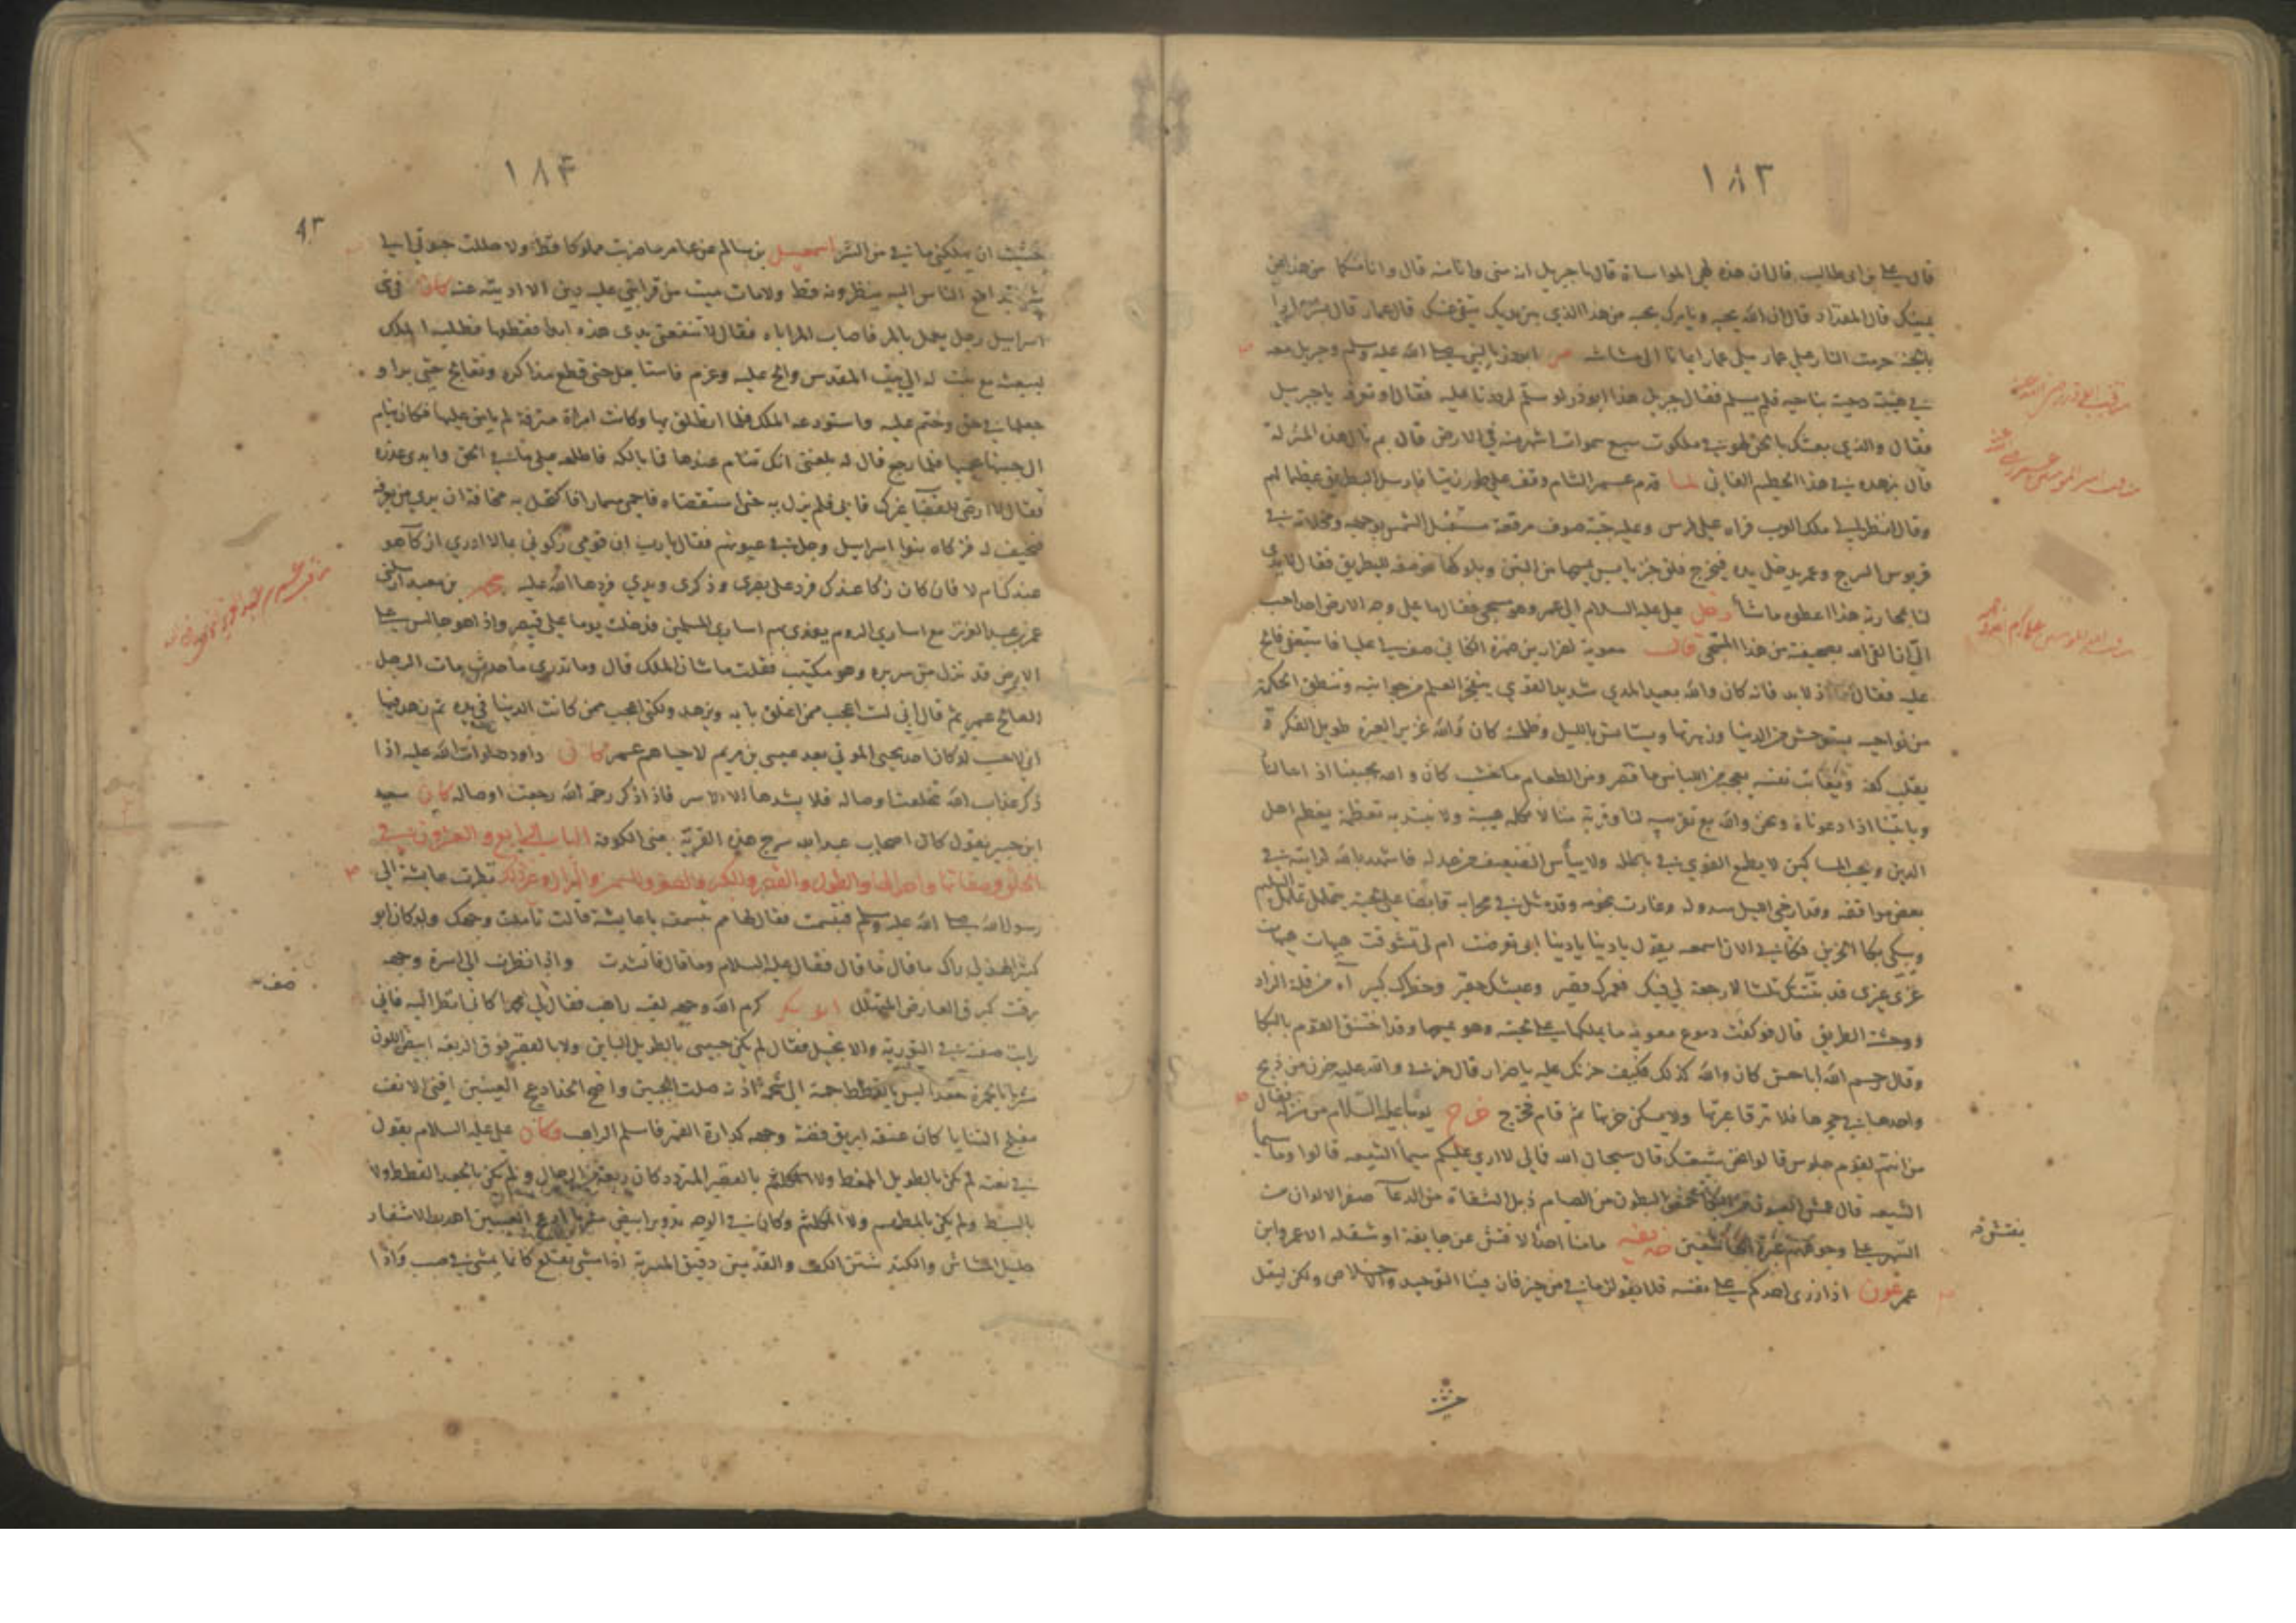 ١٨٣
قال علي بن ابي طالب قال ان هذه لهي المواساة قال يا جبريل انه مني وانا منه قال وانا منكما من هذا عن
يمينك قال المقداد قال ان الله يحبه ويامرك بحبه من هذا الذي بين يديك يتقي عنك قال عمار قال بشر عمارا
بالجنة حرمت النار على عمار ملئ عمار ايمانا الى مشاشه مر ابو ذر بالنبي صلى الله عليه وسلم وجبريل معه
في هيئة دحية بناحيه فلم يسلم فقال جبريل هذا ابو ذر لو سلم لرددنا عليه فقال او تعرفه يا جبريل
فقال والذي بعثك بالحق لهو في ملكوت سبع سموات اشهر منه في الارض قال بم نال هذه المنزلة
قال بزهده في هذا الحطام الفاني لما قدم عمر الشام وقف على طور زيتا فارسل البطريق عظيما لهم
وقال انظر الى ملك العرب فراه على فرس وعليه جبة صوف مرقعة مستقبل الشمس بوجهه ومخلاته في
قربوس السرج وعمر يدخل يده فيخرج فلق خبز يابس يمسحها من التبن ويلوكها فوصفه للبطريق فقال لا يدي
لنا بمحاربة هذا اعطوه ما شاء دخل علي عليه السلام الى عمر وهو مسجى فقال ما على وجه الارض احد احب
الي ان القى الله بصحيفته من هذا المسجى قال معوية لضرار بن ضمرة الكناني صف لي عليا فاستعفى فالح
عليه فقال اما اذ لا بد فانه كان والله بعيد المدي شديد القوي ينفجر العلم من جوانبه وتنطق الحكمة
من نواحيه يستوحش من الدنيا وزهرتها ويستانس بالليل وظلمته كان والله غزير العبرة طويل الفكرة
يقلب كفه ويعاتب نفسه يعجبه من اللباس ما قصر ومن الطعام ما خشب كان والله يجيبنا اذا سالناه
وياتينا اذا دعوناه ونحن والله مع تقريبه لنا وقربه منا لا نكلمه هيبة ولا نبتدئه تعظمة يعظم اهل
الدين ويحب المساكين لا يطمع القوي في باطله ولا ييأس الضعيف من عدله فاشهد بالله لرايته في
بعض مواقفه وقد ارخى الليل سدوله وغارت نجومه وقد مثل في محرابه قابضا على لحيته يتململ تململ السليم
ويبكي بكا الحزين فكاني الان اسمعه يقول يا دنيا يا دنيا ابي تعرضت ام لي تشوقت هيهات هيهات
غري غيري قد بتتك ثلثا لا رجعة لي فيك فعمرك قصير وعيشك حقير وخطرك كبير آه من قلة الزاد
ووحشة الطريق قال فوكفت دموع معوية ما يملكها على لحيته وهو يمسحها وقد اختنق القوم بالبكا
وقال رحم الله ابا حسن كان والله كذلك فكيف حزنك عليه يا ضرار قال حزني والله عليه حزن من ذبح
واحدها في حجرها فلا ترقا عبرتها ولا يسكن حزنها ثم قام فخرج خرج يوما عليه السلام من منزله فقال
من انتم لقوم جلوس قالوا نحن شيعتك قال سبحان الله فمالي لا ارى عليكم سيما الشيعه قالوا وما سيما
الشيعه قال عمش العيون من البكا خمص البطون من الصيام ذبل الشفاة من الدعآ صفر الالوان من
السهر على وجوههم غبرة الخاشعين حذيفه ما منا احد الا فتش عن جايفة او منقله الا عمر وابن
عمر عون اذا ازرى احدكم على نفسه فلا يقولن ما في من خير فان فينا التوحيد والاخلاص ولكن ليقل
يفتش فه
١٨۴
٩٣
خشيت ان يهلكني ما في من الشر اسمعيل بن سالم عن عامر ما ضربت مملوكا قط ولا حللت حبوتي الى
شئ تداعى الناس اليه ينظرونه قط ولا مات ميت من قرابتي عليه دين الا اديته عنه كان في بني
اسرايل رجل يعمل بالمر فاصاب المر اباه فقال لا تتبعني يدي هذه ابدا فقطعها فطلب الملك
ليبعث مع بنت له الى بيت المقدس والح عليه وعزم فاستاجل حتى قطع مذاكره وتعالج حتى برا و
جعلها في حق وختم عليه واستودعه الملك فلما انطلق بها وكانت امراة مترفة لم يامن عليها فكان ينام
الى جنبها يحميها فلما رجع قال له بلغني انك تنام عندها فما بالك فاطلعه على ما في الحق وابدى عذره
عمر بن عبد العزيز مع اسارى الروم يفدى بهم اسارى المسلمين فدخلت يوما على قيصر واذا هو جالس على
الارض قد نزل عن سريره وهو مكتيب فقلت ما شان الملك قال وما تدري ما حدث مات الرجل
الصالح عمر ثم قال اني لست اعجب ممن اغلق بابه وتزهد ولكني اعجب ممن كانت الدنيا في يده ثم زهد فيها
اني لاحسب لو كان احد يحيى الموتى بعد عيسى بن مريم لاحياهم عمر كان داود صلوات الله عليه اذا
ذكر عذاب الله تخلعت اوصاله فلا يشدها الا الاسر فاذا ذكر رحمة الله رجعت اوصاله كان سعيد
ابن جبير يقول كان اصحاب عبد الله سرج هذه القرية يعني الكوفة الباب الرابع والعشرون في
الخلق وصفاتها واحوالها والطول والقصر والكبر والصغر والسمن والهزال وغير ذلك نظرت عايشة الى
رسول الله صلى الله عليه وسلم فتبسمت فقال لها مم تبسمت يا عايشة قالت تاملت وجهك ولو كان ابو
كبير الهذلي راك ما قال ما قال فقال عليه السلام وما قال فانشدت واذا نظرت الى اسرة وجهه
برقت كبرق العارض المتهلل ابو بكر كرم الله وجهه لقيه راهب فقال لي محمدا كاني انظر اليه فاني
رايت صفته في التورية والانجيل فقال لم يكن حبيبي بالطويل الباين ولا بالقصير فوق الربعه ابيض اللون
مشربا بالحمرة جعدا ليس بالقطط جمته الى شحمة اذنه صلت الجبين واضح الخد ادعج العينين اقنى الانف
مفلج الثنايا كان عنقه ابريق فضة وجهه كدارة القمر فاسلم الراهب وكان علي عليه السلام يقول
في نعته لم يكن بالطويل الممغط ولا بالقصير المتردد كان ربعة من الرجال ولم يكن بالجعد القطط ولا
بالسبط ولم يكن بالمطهم ولا المكلثم وكان في الوجه تدوير ابيض مشربا ادعج العينين اهدب الاشفار
جليل المشاش والكتد شثن الكف والقدمين دقيق المسربة اذا مشى يتقلع كانما يمشي في صبب واذا